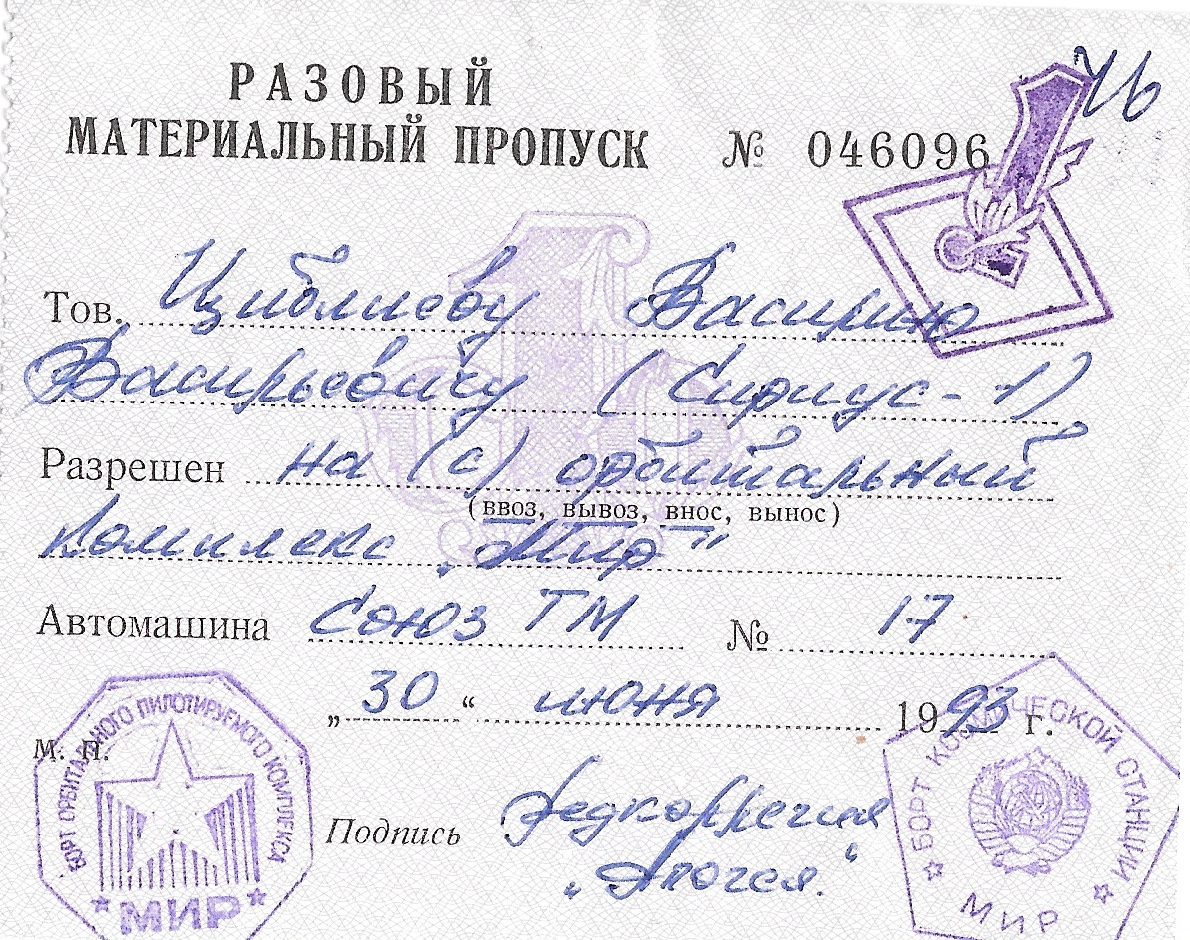 РАЗОВЫЙ
МАТЕРИАЛЬНЫЙ ПРОПУСК № 046096
Тов. Циблиеву Василию
Васильевичу (Сириус-1)
Разрешен на (с) орбитальный
(ввоз, вывоз, внос, вынос)
комплекс „Мир"
Автомашина Союз ТМ № 17
„30“ июня 1993 г.
м. п.
Подпись Редколлегия
„Апогея."
БОРТ ОРБИТАЛЬНОГО ПИЛОТИРУЕМОГО КОМПЛЕКСА
МИР
БОРТ КОСМИЧЕСКОЙ СТАНЦИИ
МИР